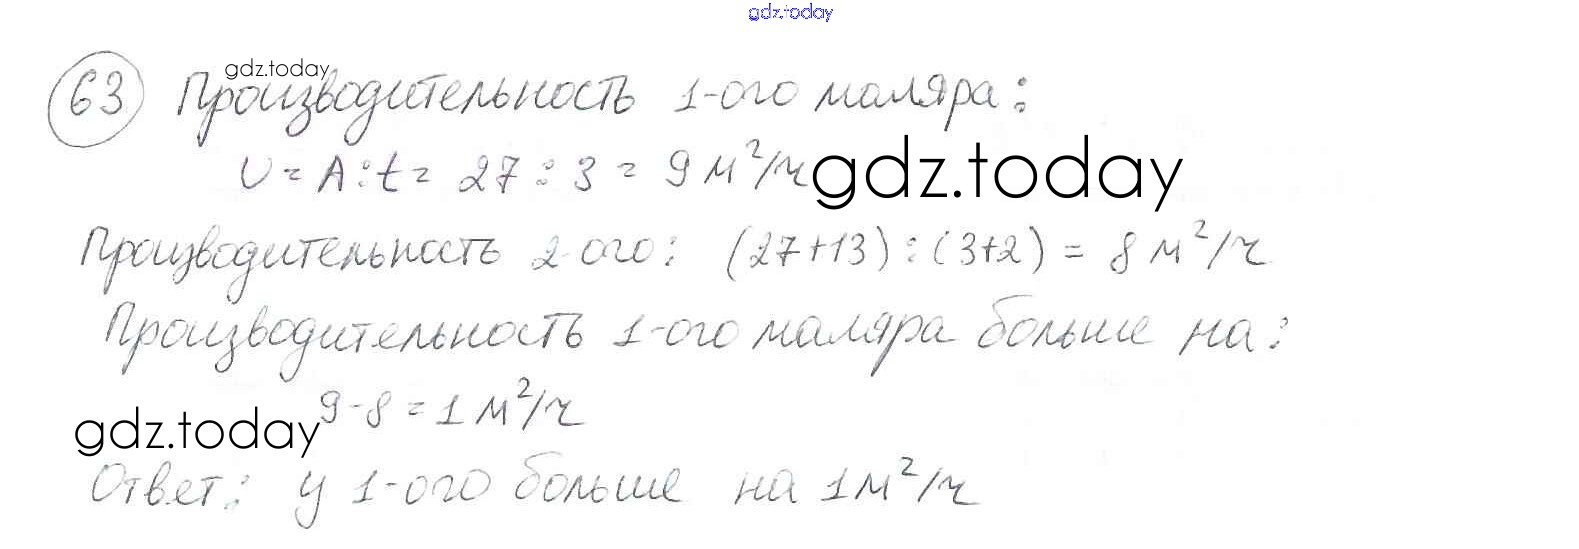 gdz.today
63 Производительность 1-ого маляра:
gdz.today
υ = A : t = 27 : 3 = 9 м²/ч
gdz.today
Производительность 2-ого: (27+13) : (3+2) = 8 м²/ч
Производительность 1-ого маляра больше на:
9-8 = 1 м²/ч
gdz.today
Ответ: у 1-ого больше на 1 м²/ч